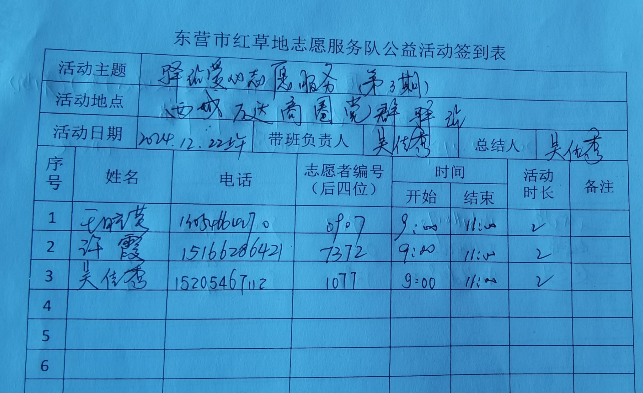 东营市红草地志愿服务队公益活动签到表
活动主题 驿站黄心志愿服务（第3期）
活动地点 西城万达商圈党群驿站
活动日期 2024.12.22上午 带班负责人 吴佳秀 总结人 吴佳秀
序号 姓名 电话 志愿者编号（后四位） 时间 开始 结束 活动时长 备注
1 0907 9:00 11:00 2
2 许霞 15166286421 7372 9:00 11:00 2
3 吴佳秀 15205467112 1077 9:00 11:00 2
4
5
6